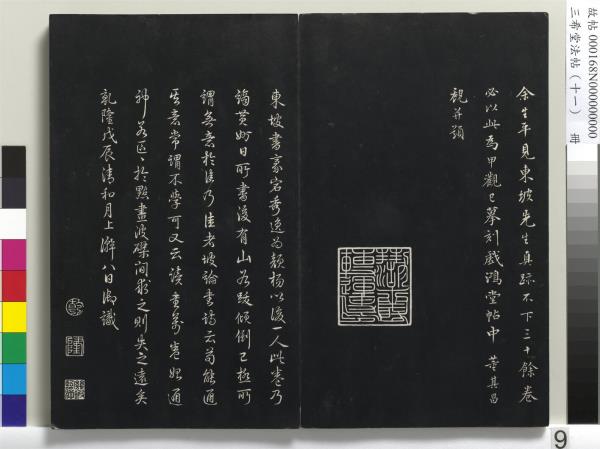 故帖 000168N000000000
三希堂法帖（十一） 冊
余生平見東坡先生真跡不下三十餘卷
必以此為甲觀已摹刻戲鴻堂帖中 董其昌
觀并題
東坡書豪宕秀逸為顏楊以後一人此卷乃
謫黃州日所書後有山谷跋傾倒已極所
謂無意於佳乃佳者坡論書詩云苟能通
其意常謂不學可又云讀書萬卷始通
神若區〻於點畫波磔間求之則失之遠矣
乾隆戊辰清和月上澣八日御識
乾
隆
9